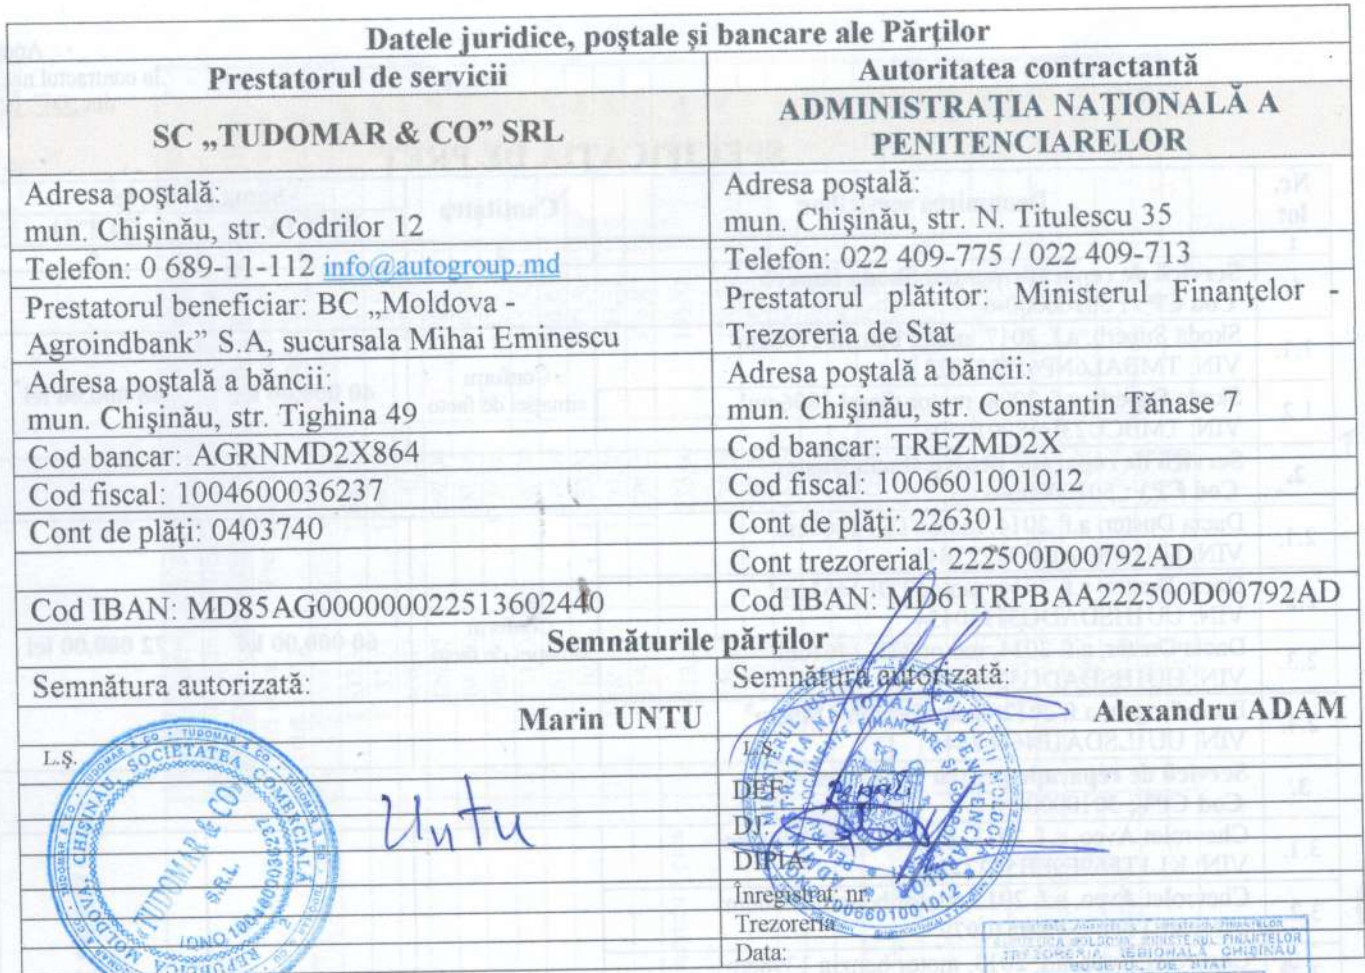 Datele juridice, poştale şi bancare ale Părţilor
Prestatorul de servicii
Autoritatea contractantă
SC „TUDOMAR & CO” SRL
ADMINISTRAŢIA NAŢIONALĂ A
PENITENCIARELOR
Adresa poştală:
mun. Chişinău, str. Codrilor 12
Adresa poştală:
mun. Chişinău, str. N. Titulescu 35
Telefon: 0 689-11-112 info@autogroup.md
Telefon: 022 409-775 / 022 409-713
Prestatorul beneficiar: BC „Moldova -
Agroindbank” S.A, sucursala Mihai Eminescu
Prestatorul plătitor: Ministerul Finanţelor -
Trezoreria de Stat
Adresa poştală a băncii:
mun. Chişinău, str. Tighina 49
Adresa poştală a băncii:
mun. Chişinău, str. Constantin Tănase 7
Cod bancar: AGRNMD2X864
Cod bancar: TREZMD2X
Cod fiscal: 1004600036237
Cod fiscal: 1006601001012
Cont de plăţi: 0403740
Cont de plăţi: 226301
Cont trezorerial: 222500D00792AD
Cod IBAN: MD85AG000000022513602440
Cod IBAN: MD61TRPBAA222500D00792AD
Semnăturile părţilor
Semnătura autorizată:
Semnătura autorizată:
Marin UNTU
Alexandru ADAM
L.Ş.
L.Ş.
Untu
DEF:
DJ:
DIPIA:
Înregistrat: nr.
Trezoreria
Data:
REPUBLICA MOLDOVA, CHIŞINĂU, SOCIETATEA COMERCIALĂ
"TUDOMAR & CO"
S.R.L.
IDNO 1004600036237
1006601001012
REPUBLICA MOLDOVA, MINISTERUL FINANŢELOR
TREZORERIA REGIONALĂ CHIŞINĂU
BUGETUL DE STAT